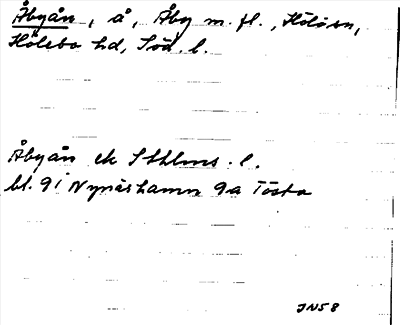 Åbyån, å, Åby m.fl., Hölösn,
Hölebo hd, Söd. l.
Åbyån ek Sthlms. l.
bl. 9i Nynäshamn 9a Tösta
JN58